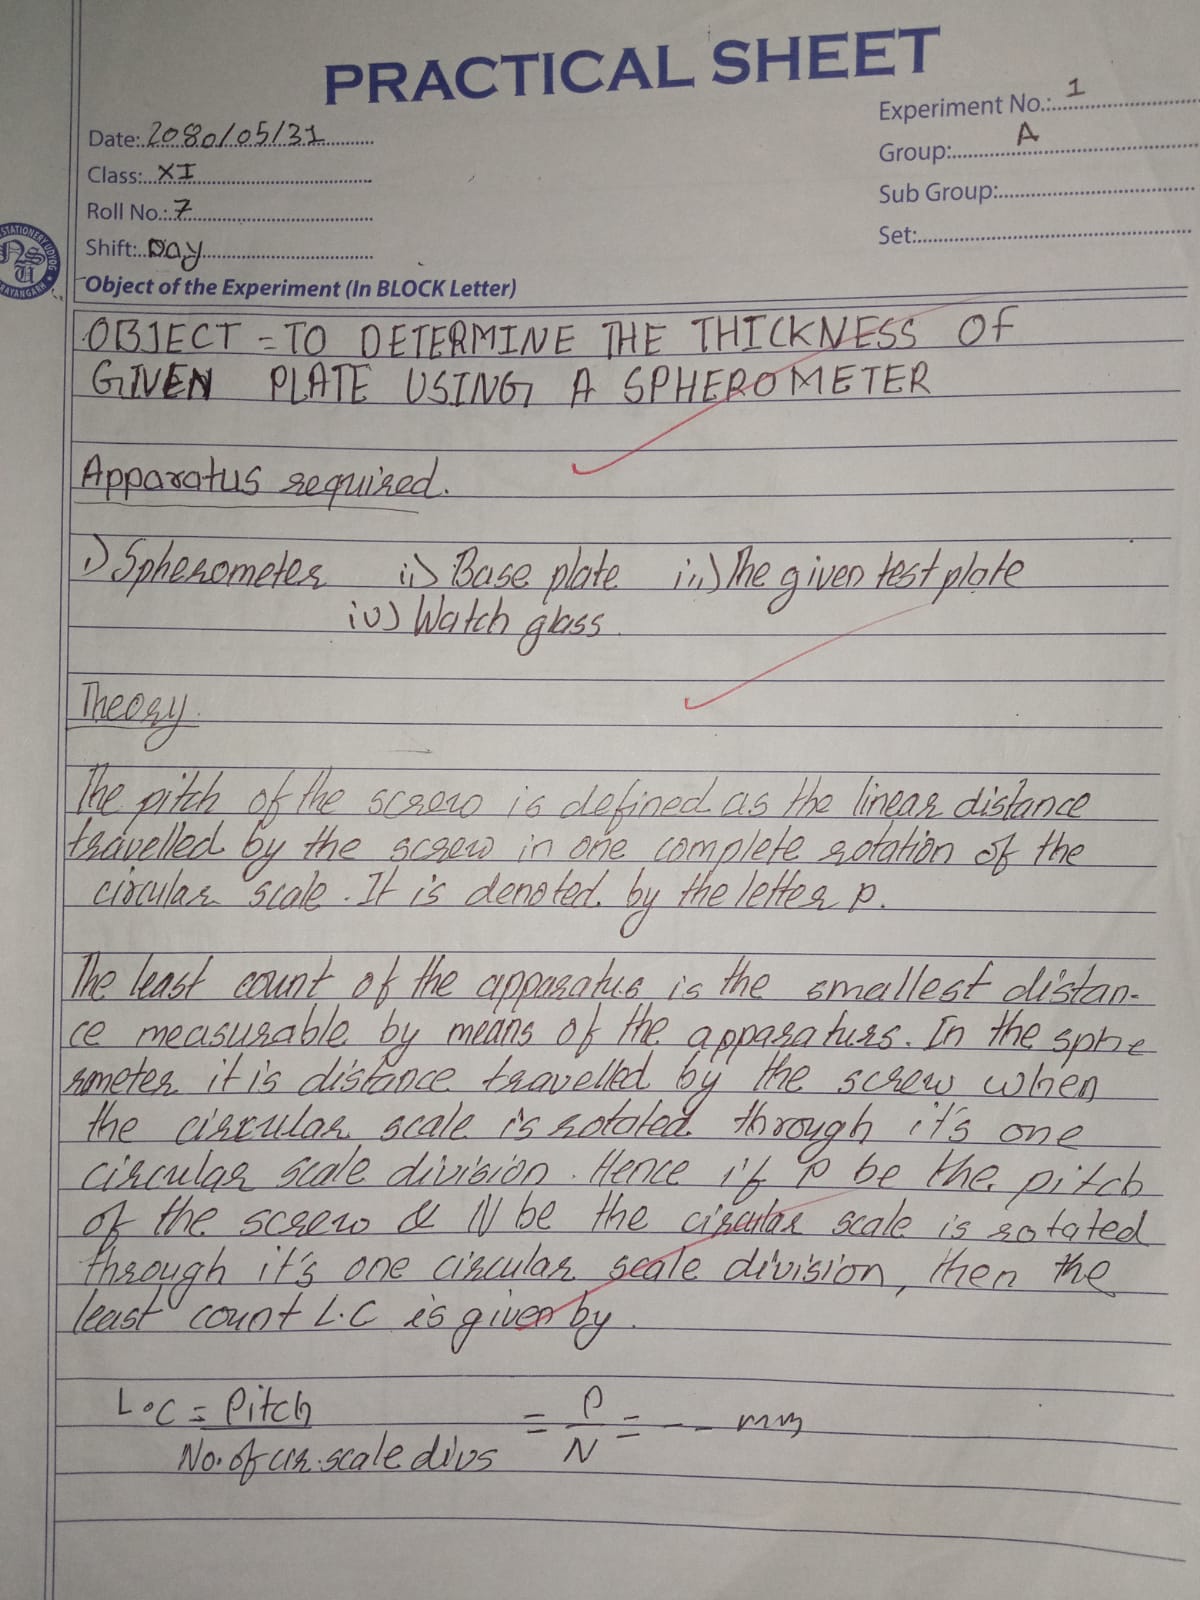 PRACTICAL SHEET
Date: 2080/05/31
Experiment No.: 1
Class: XI
Group: A
Roll No.: 7
Sub Group:
Shift: Day
Set:
Object of the Experiment (In BLOCK Letter)
OBJECT = TO DETERMINE THE THICKNESS OF
GIVEN PLATE USING A SPHEROMETER
Apparatus required.
i) Spherometer ii) Base plate iii) The given test plate
iv) Watch glass.
Theory.
The pitch of the screw is defined as the linear distance
travelled by the screw in one complete rotation of the
circular scale. It is denoted by the letter p.
The least count of the apparatus is the smallest distan-
ce measurable by means of the apparaturs. In the sphe
rometer it is distance travelled by the screw when
the circular scale is rotated through it's one
circular scale division. Hence if P be the pitch
of the screw & N be the circular scale is rotated
through it's one circular scale division, then the
least count L.C is given by.
L.C = Pitch / No. of cir. scale divs = P / N = -- mm